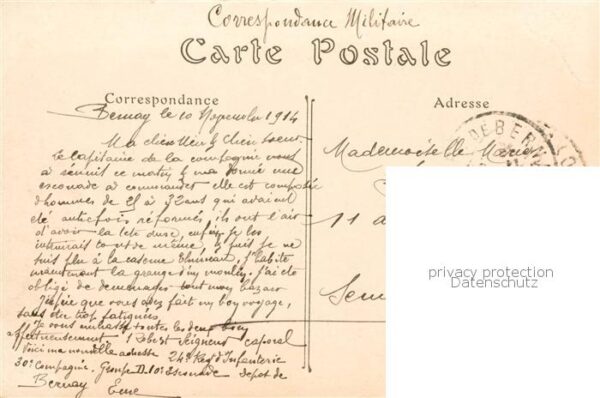 Correspondance Militaire
Carte Postale
Correspondance
Adresse
Bernay le 10 Novembre 1914
Ma chère Mère & Chère Soeur.
Le Capitaine de la compagnie nous
a réunit ce matin & m'a donné une
escouade a commander elle est composée
d'hommes de 25 à 32 ans qui avaient
été autrefois réformés, ils ont l'air
d'avoir la tête dure, enfin je les
tout de même, & puis je ne
suis plus à la caserne J'habite
maintenant la grange j'ai été
obligé de déménager tout mon bazar
J'espère que vous avez fait un bon voyage,
sans être trop fatiguées
Je vous embrasse toutes les deux bien
affectueusement Robert Seigneur caporal
Voici ma nouvelle adresse 24e Reg d'Infanterie
30e Compagnie. Groupe D. 10e Escouade Dépôt de
Bernay Eure
Mademoiselle Marie
11
DE BERNAY
privacy protection
Datenschutz